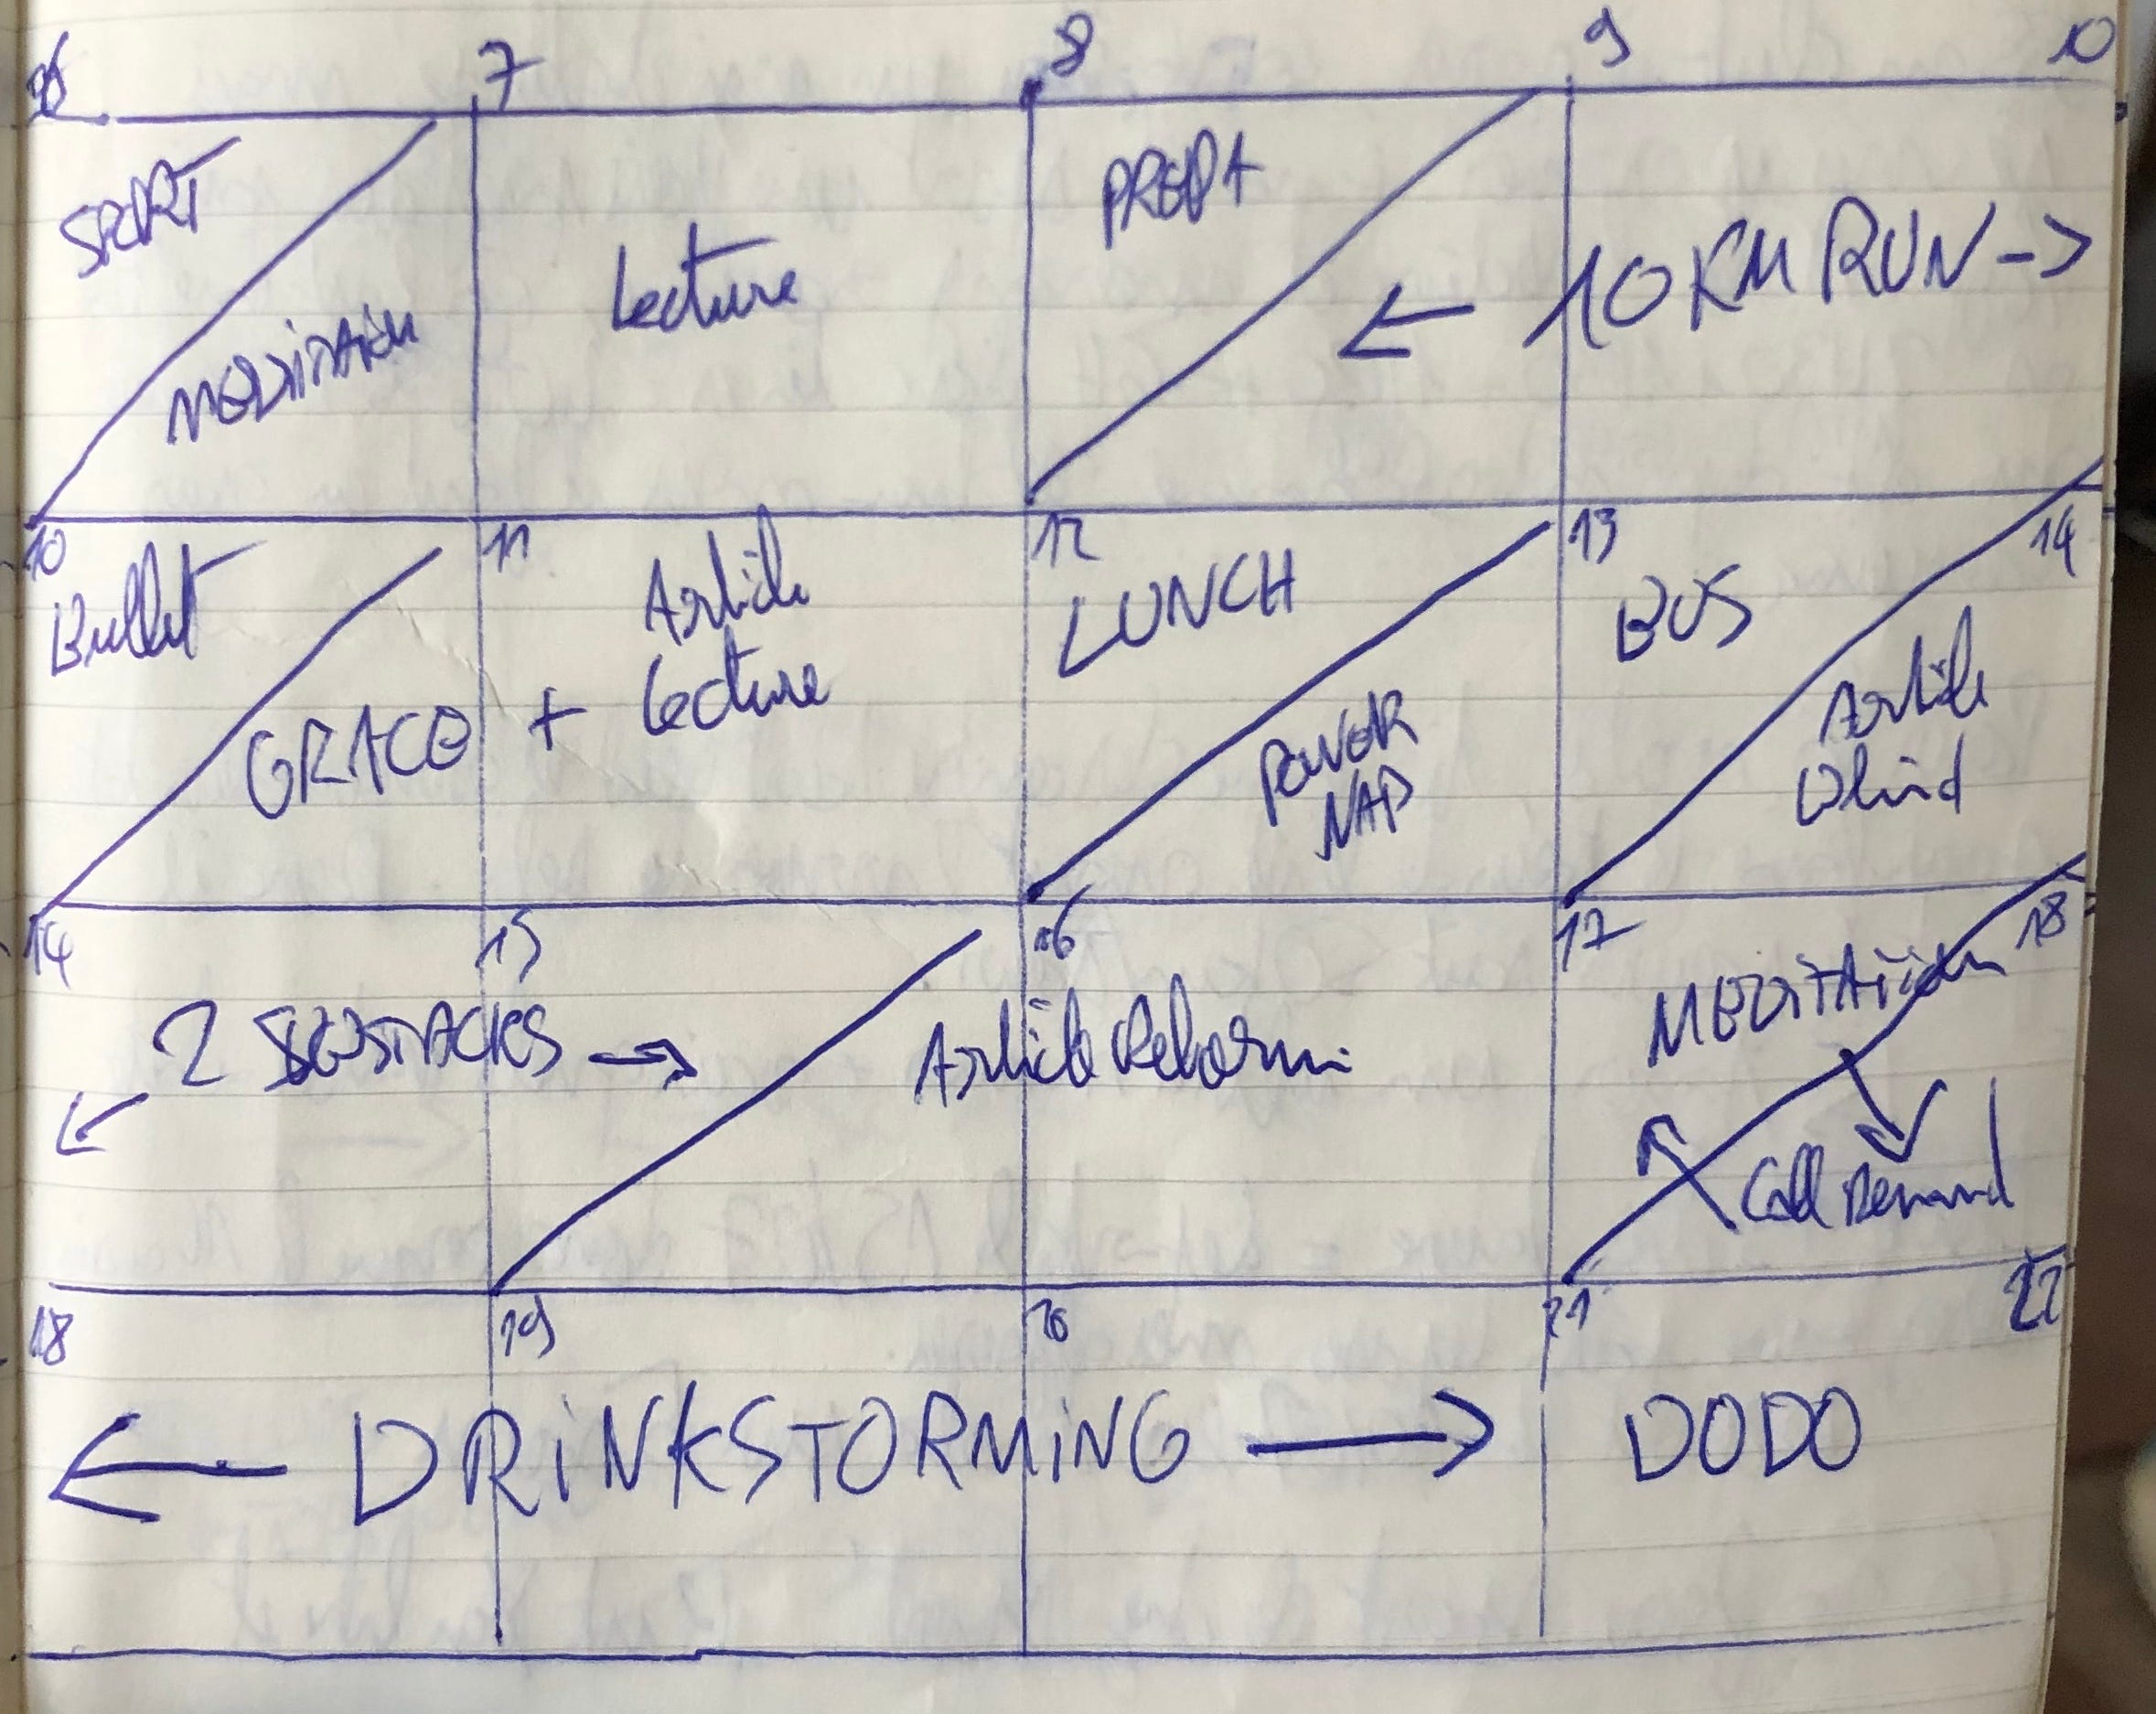 6 7 8 9 10
SPORT
MEDITATION
Lecture
PREPA
← 10 KM RUN ->
10 11 12 13 14
Bullet
GRACE + Article
Lecture
LUNCH
POWER
NAP
BUS
Article
14 15 16 17 18
← 2 SUBSTACKS →
Article
MEDITATION
Call
18 19 20 21 22
← DRINKSTORMING →
DODO